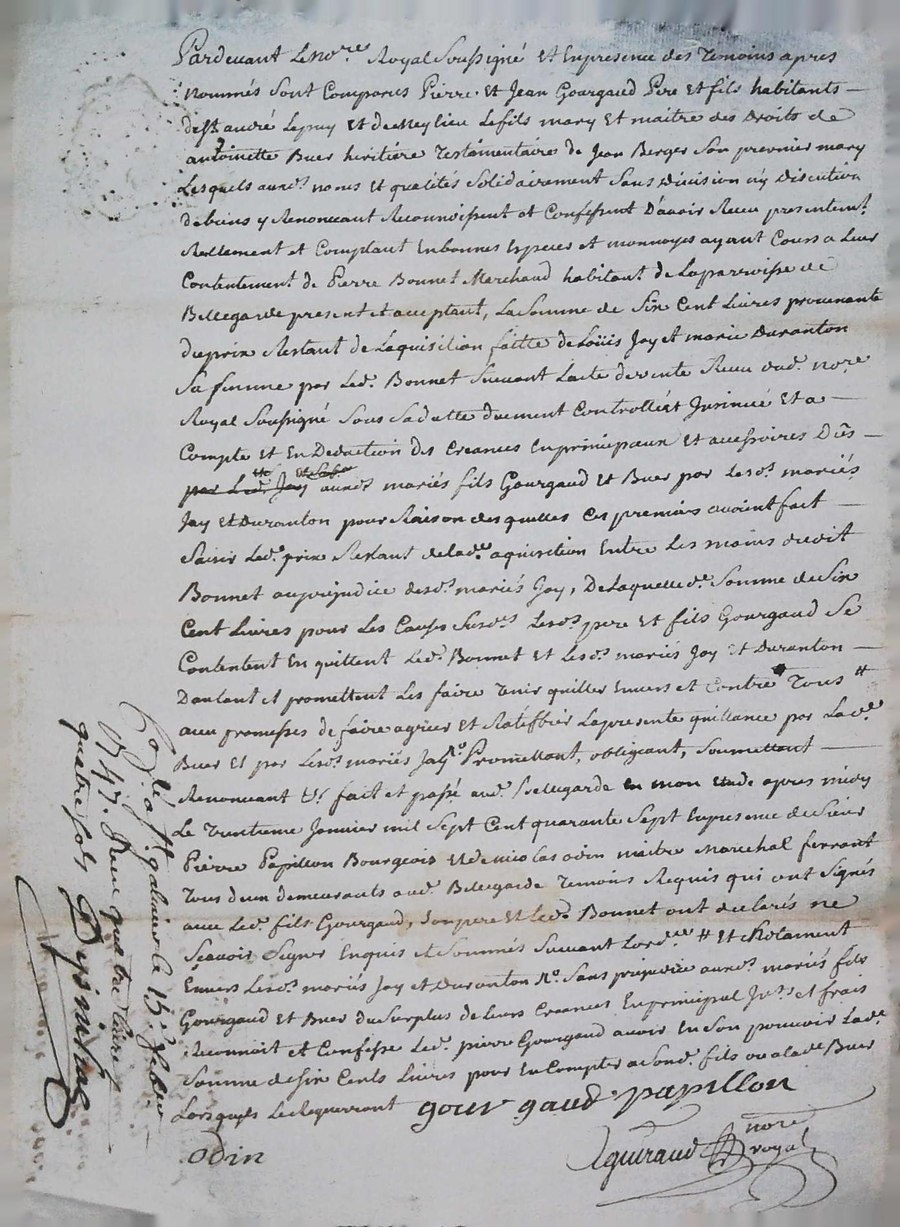 Pardevant Le no.re Royal Soussigné Et En presence des Temoins apres
nommés Sont Comparus Pierre Et Jean Gourgaud Pere et fils habitants
de St. andré Lepuy Et de Meylieu Le fils mary Et maitre des Droits de
antoinette Buer heritiere Testamentaire de Jean Berger Son premier mary
Lesquels auxd. noms Et qualités Solidairement Sans Division ny Discution
de biens y Renoncant Reconnoissent et Confessent D'avoir Receu presentemt.
Reellement et Comptant En bonnes Especes et monnoyes ayant Cours a Leur
Contentement de Pierre Bonnet Marchand habitant de La parroisse de
Bellegarde present et acceptant, La Somme de Six Cent Livres provenante
du prix Restant de Laquisition faitte de Loüis Jay et marie Duranton
Sa femme par Led. Bonnet Suivant Lacte de vente Receu dud. no.re
Royal Soussigné Sous Sa datte duement Controllé et Insinué Et a
Compte et En Deduction des Creances En principaux Et accessoires Dües
par Led. Jay auxd. mariés fils Gourgaud et Buer par Lesds. mariés
Jay Et Duranton pour Raison desquelles Ces premiers avoient fait
Saisir Led. prix Restant de lad.e aquisition Entre Les mains dudit
Bonnet au prejudice desds. mariés Jay, De Laquelle de. Somme de Six
Cent Livres pour Les Causes Susds. Lesds. pere Et fils Gourgaud Se
Contentent En quittent Led. Bonnet Et Lesds. mariés Jay Et Duranton
Dautant et promettent Les faire Tenir quittes Envers et Contre Tous #
avec promesses de faire agréer et Ratiffier La presente quittance par Lad.e
Buer Et par Lesds. mariés Jay Promettant, obligeant, Soumettant
Renoncant &c. fait et passé aud. Bellegarde En mon Etude apres midy
Le Trentieme Janvier mil Sept Cent quarante Sept En presence de Sieur
Pierre Papillon Bourgeois Et de nicolas odin maitre Marechal ferrant
Tous deux demeurants aud. Bellegarde Temoins Requis qui ont Signés
avec Led. fils Gourgaud, Son pere Et Led. Bonnet ont declarés ne
Sçavoir Signer Enquis et Sommés Suivant Lord.ce # Et notament
Envers Lesds. mariés Jay et Duranton Sans prejudice auxds. mariés fils
Gourgaud Et Buer du Surplus de Leurs Creances En principal Juts. et frais
Reconnoit et Confesse Led. pierre Gourgaud avoir En Son pouvoir Lad.e
Somme de Six Cents Livres pour En Compter a Sond. fils ou a lad.e Buer
Lorsquils Le Requerront gourgaud papillon
odin guiraud nore royal
Con.lé a St. galmier le 15. febv.
1747. Receu quatre livres
quatre sols